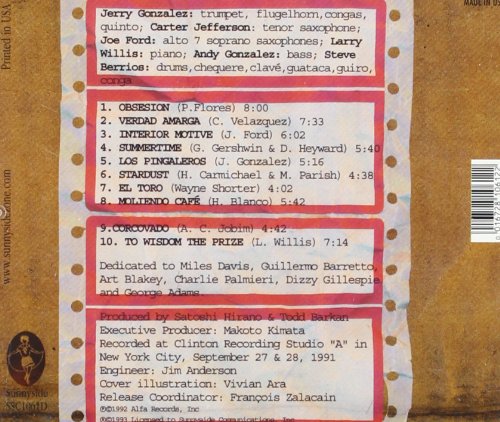 Jerry Gonzalez: trumpet, flugelhorn,congas,
quinto; Carter Jefferson: tenor saxophone;
Joe Ford: alto 7 soprano saxophones; Larry
Willis: piano; Andy Gonzalez: bass; Steve
Berrios: drums,chequere,clavé,guataca,guiro,
conga
1. OBSESION (P.Flores) 8:00
2. VERDAD AMARGA (C. Velazquez) 7:33
3. INTERIOR MOTIVE (J. Ford) 6:02
4. SUMMERTIME (G. Gershwin & D. Heyward) 5:40
5. LOS PINGALEROS (J. Gonzalez) 5:16
6. STARDUST (H. Carmichael & M. Parish) 4:38
7. EL TORO (Wayne Shorter) 4:02
8. MOLIENDO CAFÉ (H. Blanco) 5:42
9.CORCOVADO (A. C. Jobim) 4:42
10. TO WISDOM THE PRIZE (L. Willis) 7:14
Dedicated to Miles Davis, Guillermo Barretto,
Art Blakey, Charlie Palmieri, Dizzy Gillespie
and George Adams.
Produced by Satoshi Hirano & Todd Barkan
Executive Producer: Makoto Kimata
Recorded at Clinton Recording Studio "A" in
New York City, September 27 & 28, 1991
Engineer: Jim Anderson
Cover illustration: Vivian Ara
Release Coordinator: François Zalacain
℗©1992 Alfa Records, Inc
℗©1993 Licensed to Sunnyside Communications, Inc.
Printed in USA
www.sunnysidezone.com
Sunnyside
SSC1061D
MADE IN US